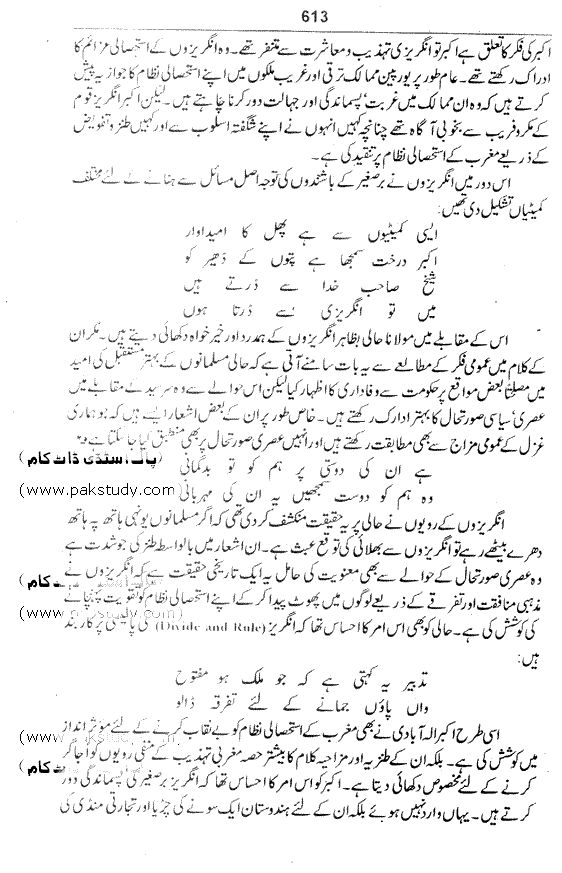 613
اکبر کی فکر کا تعلق ہے اکبر تو انگریزی تہذیب و معاشرت سے متنفر تھے۔ وہ انگریزوں کے استحصالی عزائم کا
ادراک رکھتے تھے۔ عام طور پر یورپین ممالک ترقی اور غریب ملکوں میں اپنے استحصالی نظام کا جواز یہ پیش
کرتے ہیں کہ وہ ان ممالک میں غربت، پسماندگی اور جہالت دور کرنا چاہتے ہیں۔ لیکن اکبر انگریز قوم
کے مکر و فریب سے بخوبی آگاہ تھے چنانچہ کہیں انہوں نے اپنے شگفتہ اسلوب سے اور کہیں طنز و تفویض
کے ذریعے مغرب کے استحصالی نظام پر تنقید کی ہے۔
اس دور میں انگریزوں نے برصغیر کے باشندوں کی توجہ اصل مسائل سے ہٹانے کے لئے مختلف
کمیٹیاں تشکیل دی تھیں:
ایسی کمیٹیوں سے ہے پھل کا امیداوار
اکبر درخت سمجھا ہے پتوں کے ڈھیر کو
شیخ صاحب خدا سے ڈرتے ہیں
میں تو انگریزی سے ڈرتا ہوں
اس کے مقابلے میں مولانا حالی بظاہر انگریزوں کے ہمدرد اور خیر خواہ دکھائی دیتے ہیں۔ مگر ان
کے کلام میں عمومی فکر کے مطالعے سے یہ بات سامنے آتی ہے کہ حالی مسلمانوں کے بہتر مستقبل کی امید
میں مصلحتاً بعض مواقع پر حکومت سے وفاداری کا اظہار کیا لیکن اس حوالے سے وہ سرسید کے مقابلے میں
عصری سیاسی صورتحال کا بہتر ادراک رکھتے ہیں۔ خاص طور پر ان کے بعض اشعار ایسے ہیں کہ جو ہماری
غزل کے عمومی مزاج سے بھی مطابقت رکھتے ہیں اور انہیں عصری صورتحال پر بھی منطبق کیا جا سکتا ہے۔
(پاک اسٹڈی ڈاٹ کام)
ہے ان کی دوستی پر ہم کو تو بدگمانی
وہ ہم کو دوست سمجھیں یہ ان کی مہربانی
(www.pakstudy.com)
انگریزوں کے رویوں نے حالی پر یہ حقیقت منکشف کر دی تھی کہ اگر مسلمانوں یونہی ہاتھ پہ ہاتھ
دھرے بیٹھے رہے تو انگریزوں سے بھلائی کی توقع عبث ہے۔ ان اشعار میں بالواسطہ طنز کی جو شدت ہے
وہ عصری صورتحال کے حوالے سے بھی معنویت کی حامل یہ ایک تاریخی حقیقت ہے کہ انگریزوں نے
مذہبی منافقت اور تفرقے کے ذریعے لوگوں میں پھوٹ پیدا کر کے اپنے استحصالی نظام کو تقویت پہنچانے
کی کوشش کی ہے۔ حالی کو بھی اس امر کا احساس تھا کہ انگریز (Divide and Rule) کی پالیسی پر کاربند
ہیں:
تدبیر یہ کہتی ہے کہ جو ملک ہو مفتوح
واں پاؤں جمانے کے لئے تفرقہ ڈالو
اسی طرح اکبر الہ آبادی نے بھی مغرب کے استحصالی نظام کو بے نقاب کرنے کے لئے مؤثر انداز
میں کوشش کی ہے۔ بلکہ ان کے طنزیہ اور مزاحیہ کلام کا بیشتر حصہ مغربی تہذیب کے منفی رویوں کو اجاگر
کرنے کے لئے مخصوص دکھائی دیتا ہے۔ اکبر کو اس امر کا احساس تھا کہ انگریز برصغیر کی پسماندگی دور
کرتے ہیں۔ یہاں وارد نہیں ہوئے بلکہ ان کے لئے ہندوستان ایک سونے کی چڑیا اور تجارتی منڈی کی